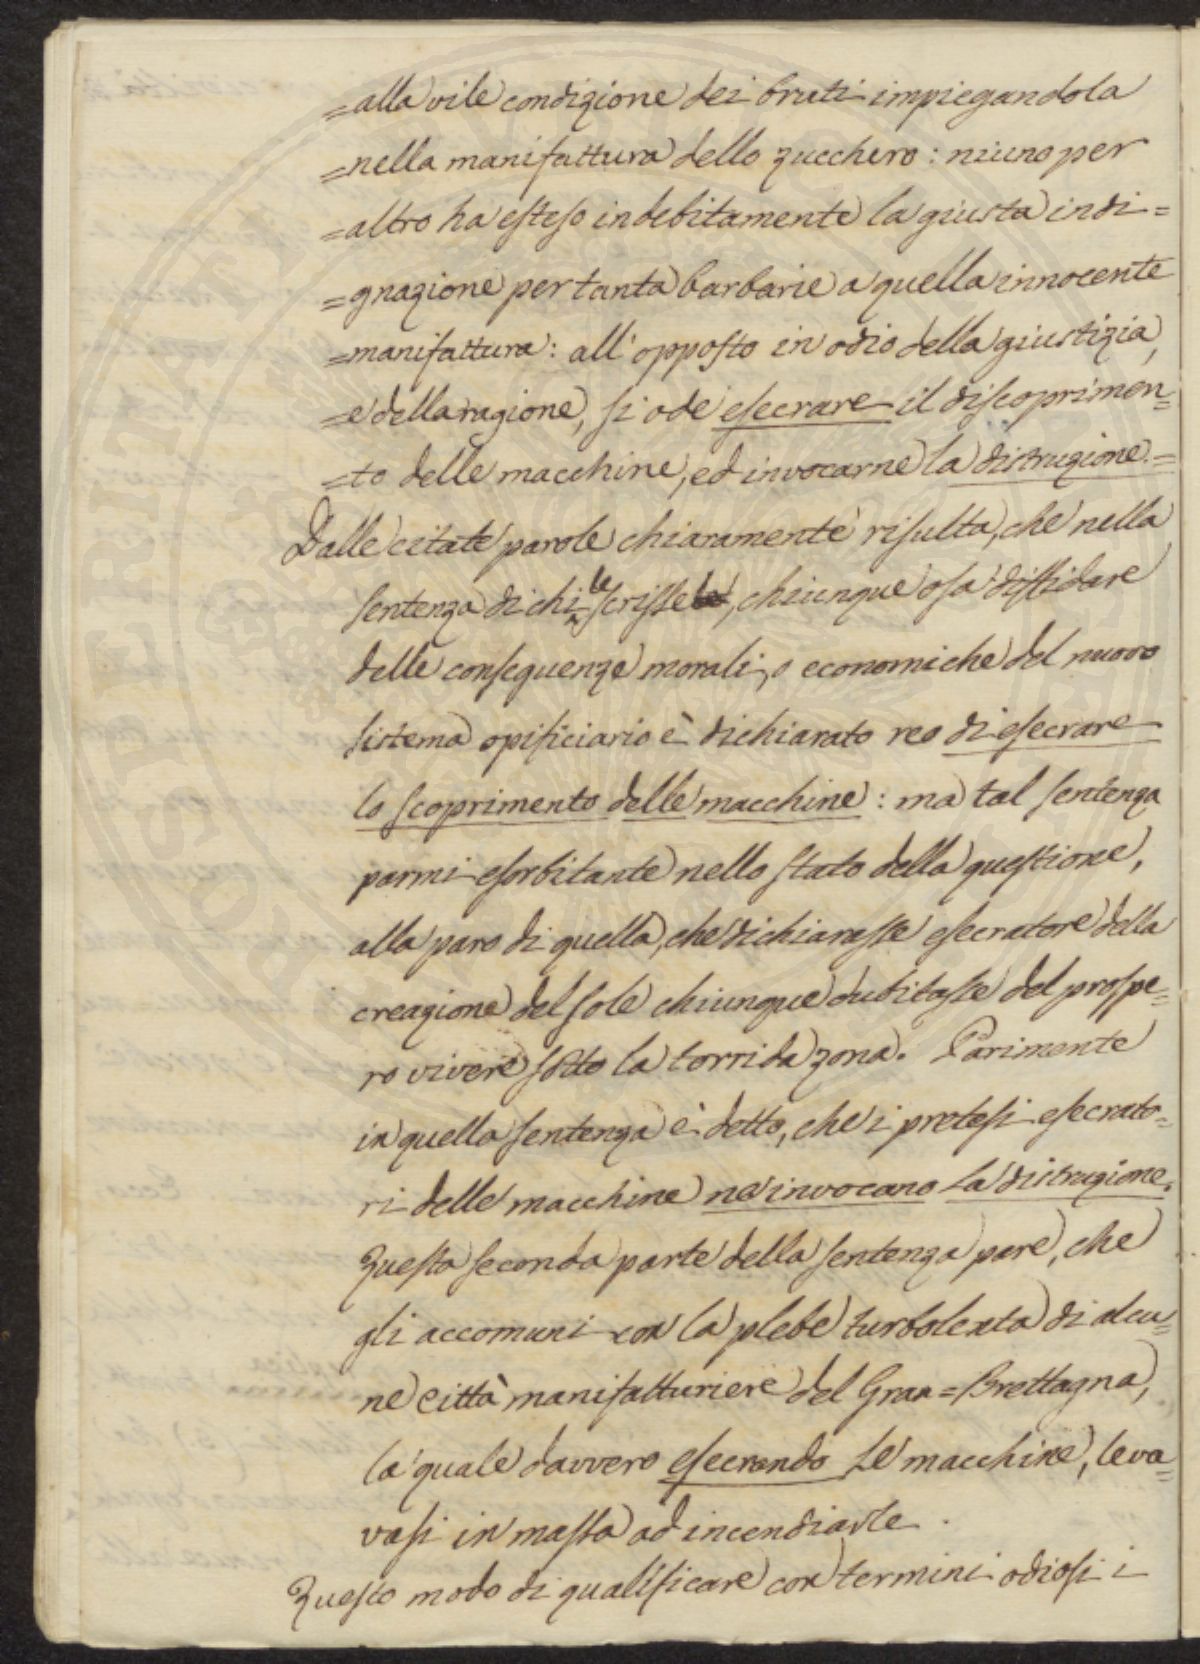 =alla vile condizione dei bruti impiegandola
=nella manifattura dello zucchero: niuno per
=altro ha esteso indebitamente la giusta indi=
=gnazione per tanta barbarie a quella innocente
=manifattura: all'opposto in odio della giustizia,
=e della ragione, si ode esecrare il discoprimen=
=to delle macchine, ed invocarne la distruzione.=
Dalle citate parole chiaramente risulta, che nella
sentenza di chi le scrisse, chiunque osa diffidare
delle conseguenze morali, o economiche del nuovo
sistema opificiario è dichiarato reo di esecrare
lo scoprimento delle macchine: ma tal sentenza
parmi esorbitante nello stato della questione,
alla paro di quella, che dichiarasse esecratore della
creazione del sole chiunque dubitasse del prospe=
ro vivere sotto la torrida zona. Parimente
in quella sentenza è detto, che i pretesi esecrato=
ri delle macchine ne invocano la distruzione.
Questa seconda parte della sentenza pare, che
gli accomuni con la plebe turbolenta di alcu=
ne città manifatturiere del Gran=Brettagna,
la quale davvero esecrando le macchine, leva=
vasi in massa ad incendiarle.
Questo modo di qualificare con termini odiosi i
POSTERITATI